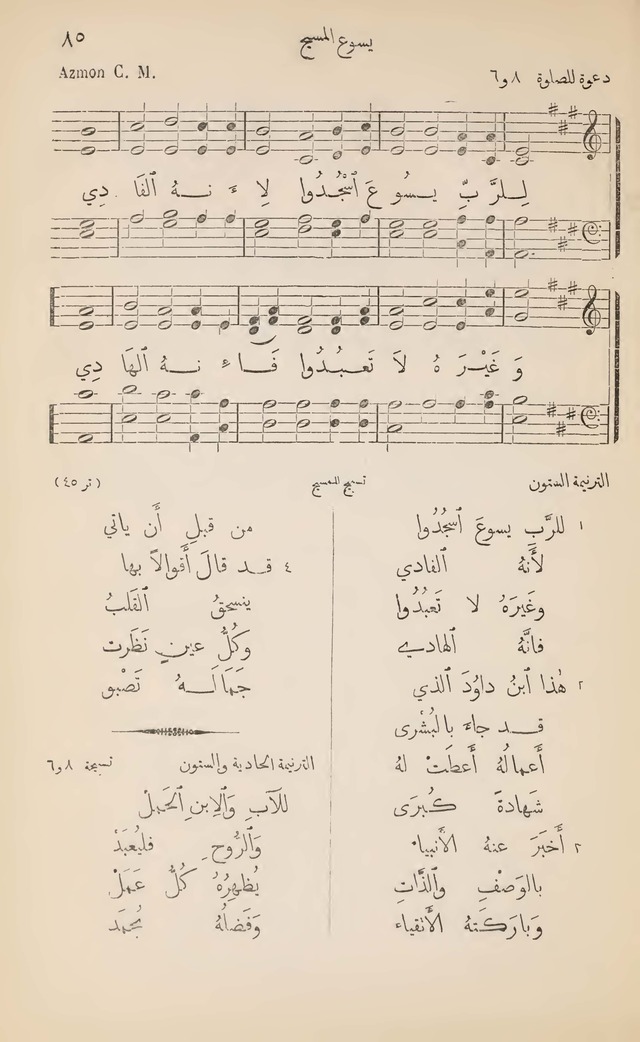 ٨٥
يسوع المسيح
Azmon C. M.
دعوة للصلوة ٨ و٦
لِلرَّبِّ يـسـوعَ ٱسْجُدُوا لِاءَنـهُ ٱلفَادِي
وَغَيْرَهُ لاَ تَعـبُـدُوا فَـاءنـهُ ٱلهَادِي
الترنيمة الستون
تسبيح المسيح
(تر ٤٥)
١ للرَّبِ يسوعَ ٱسجُدُوا
لأَنَّهُ ٱلفادي
وغَيرَهُ لا تَعبُدُوا
فانَّهُ ٱلهادي
٢ هٰذا ٱبنُ داوُدَ ٱلذي
قـد جاءَ بالبُشْرى
أَعمالُهُ أَعطَتْ لهُ
شَهادةً كُبرَى
٢ أَخبَرَ عنهُ الأَنبياء
بالوَصْفِ والذَّاتِ
وَبارَكَتهُ الأَتقياء
من قبلِ أَن ياتي
٤ قـد قالَ أَقوالاً بها
ينسحقُ ٱلقَلبُ
وكُلُّ عينٍ نَظَرت
جَمَالَـهُ تَصْبو
الترنيمة الحادية والستون
تسبحة ٨ و٦
للآبِ وَٱلاِبنِ ٱلحَمَلْ
وَٱلرُّوحِ فليُعبَدْ
يُظهِرُهُ كُلُّ عَمَلْ
وَفَضلُهُ يُحمَد